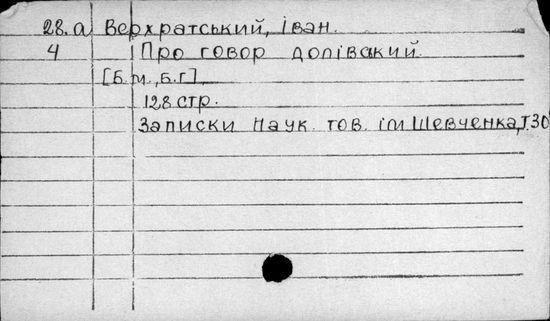 28.а Верхратський, Іван.
4 Про говор долівський.
[Б.м., б.г.]
128 стр.
Записки Наук. тов. ім Шевченка, т.30